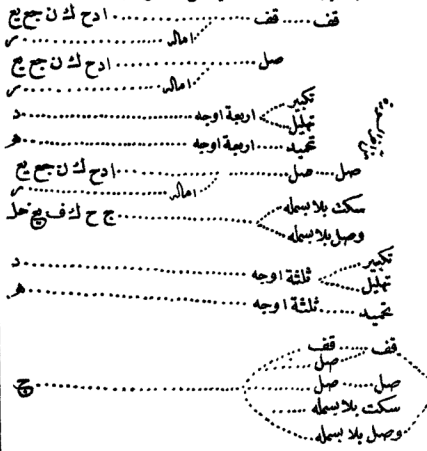 قف ..... قف ............ ادح ك ن جع يع
اماله ............ ر
صل ............ ادح ك ن جع يع
اماله ............ ر
تكبير
تهليل ... اربعة اوجه ............ د
تحميد ..... اربعة اوجه ............ هـ
صل ..... صل ............ ادح ك ن جع يع
اماله ............ ر
سكت بلا بسمله
وصل بلا بسمله ............ ج ح ك ف
تكبير
تهليل ... ثلثة اوجه ............ د
تحميد ..... ثلثة اوجه ............ هـ
قف ...... قف
صل
صل ..... صل ............ ج
سكت بلا بسمله
وصل بلا بسمله